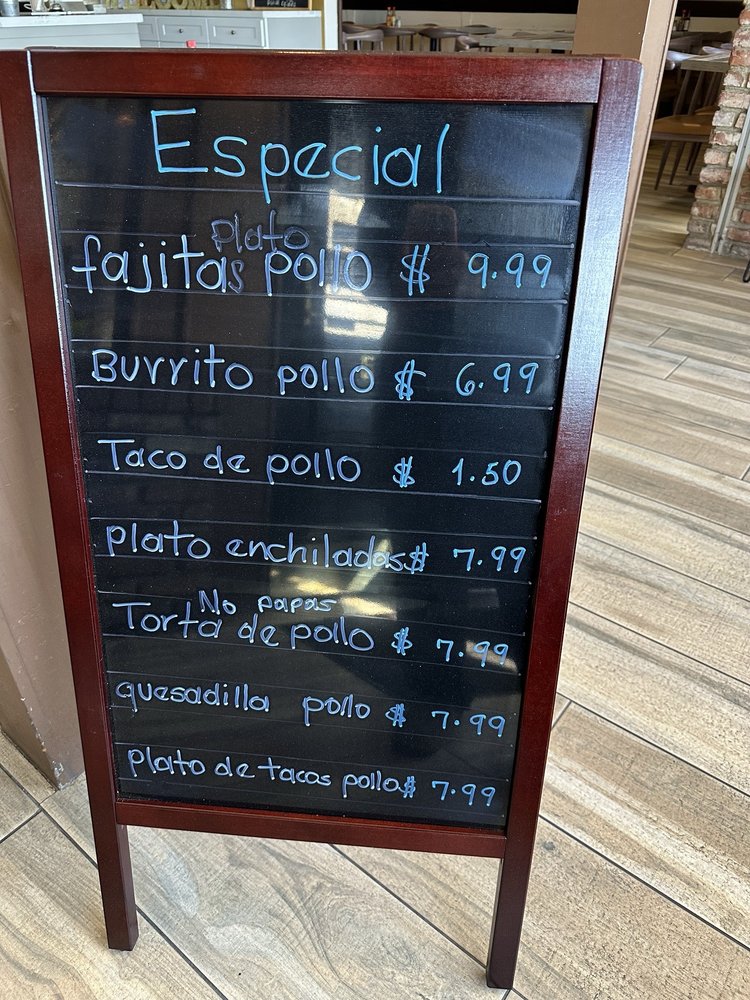 Especial
plato
fajitas pollo $ 9.99
Burrito pollo $ 6.99
Taco de pollo $ 1.50
plato enchiladas $ 7.99
No papas
Torta de pollo $ 7.99
quesadilla pollo $ 7.99
plato de tacos pollo $ 7.99